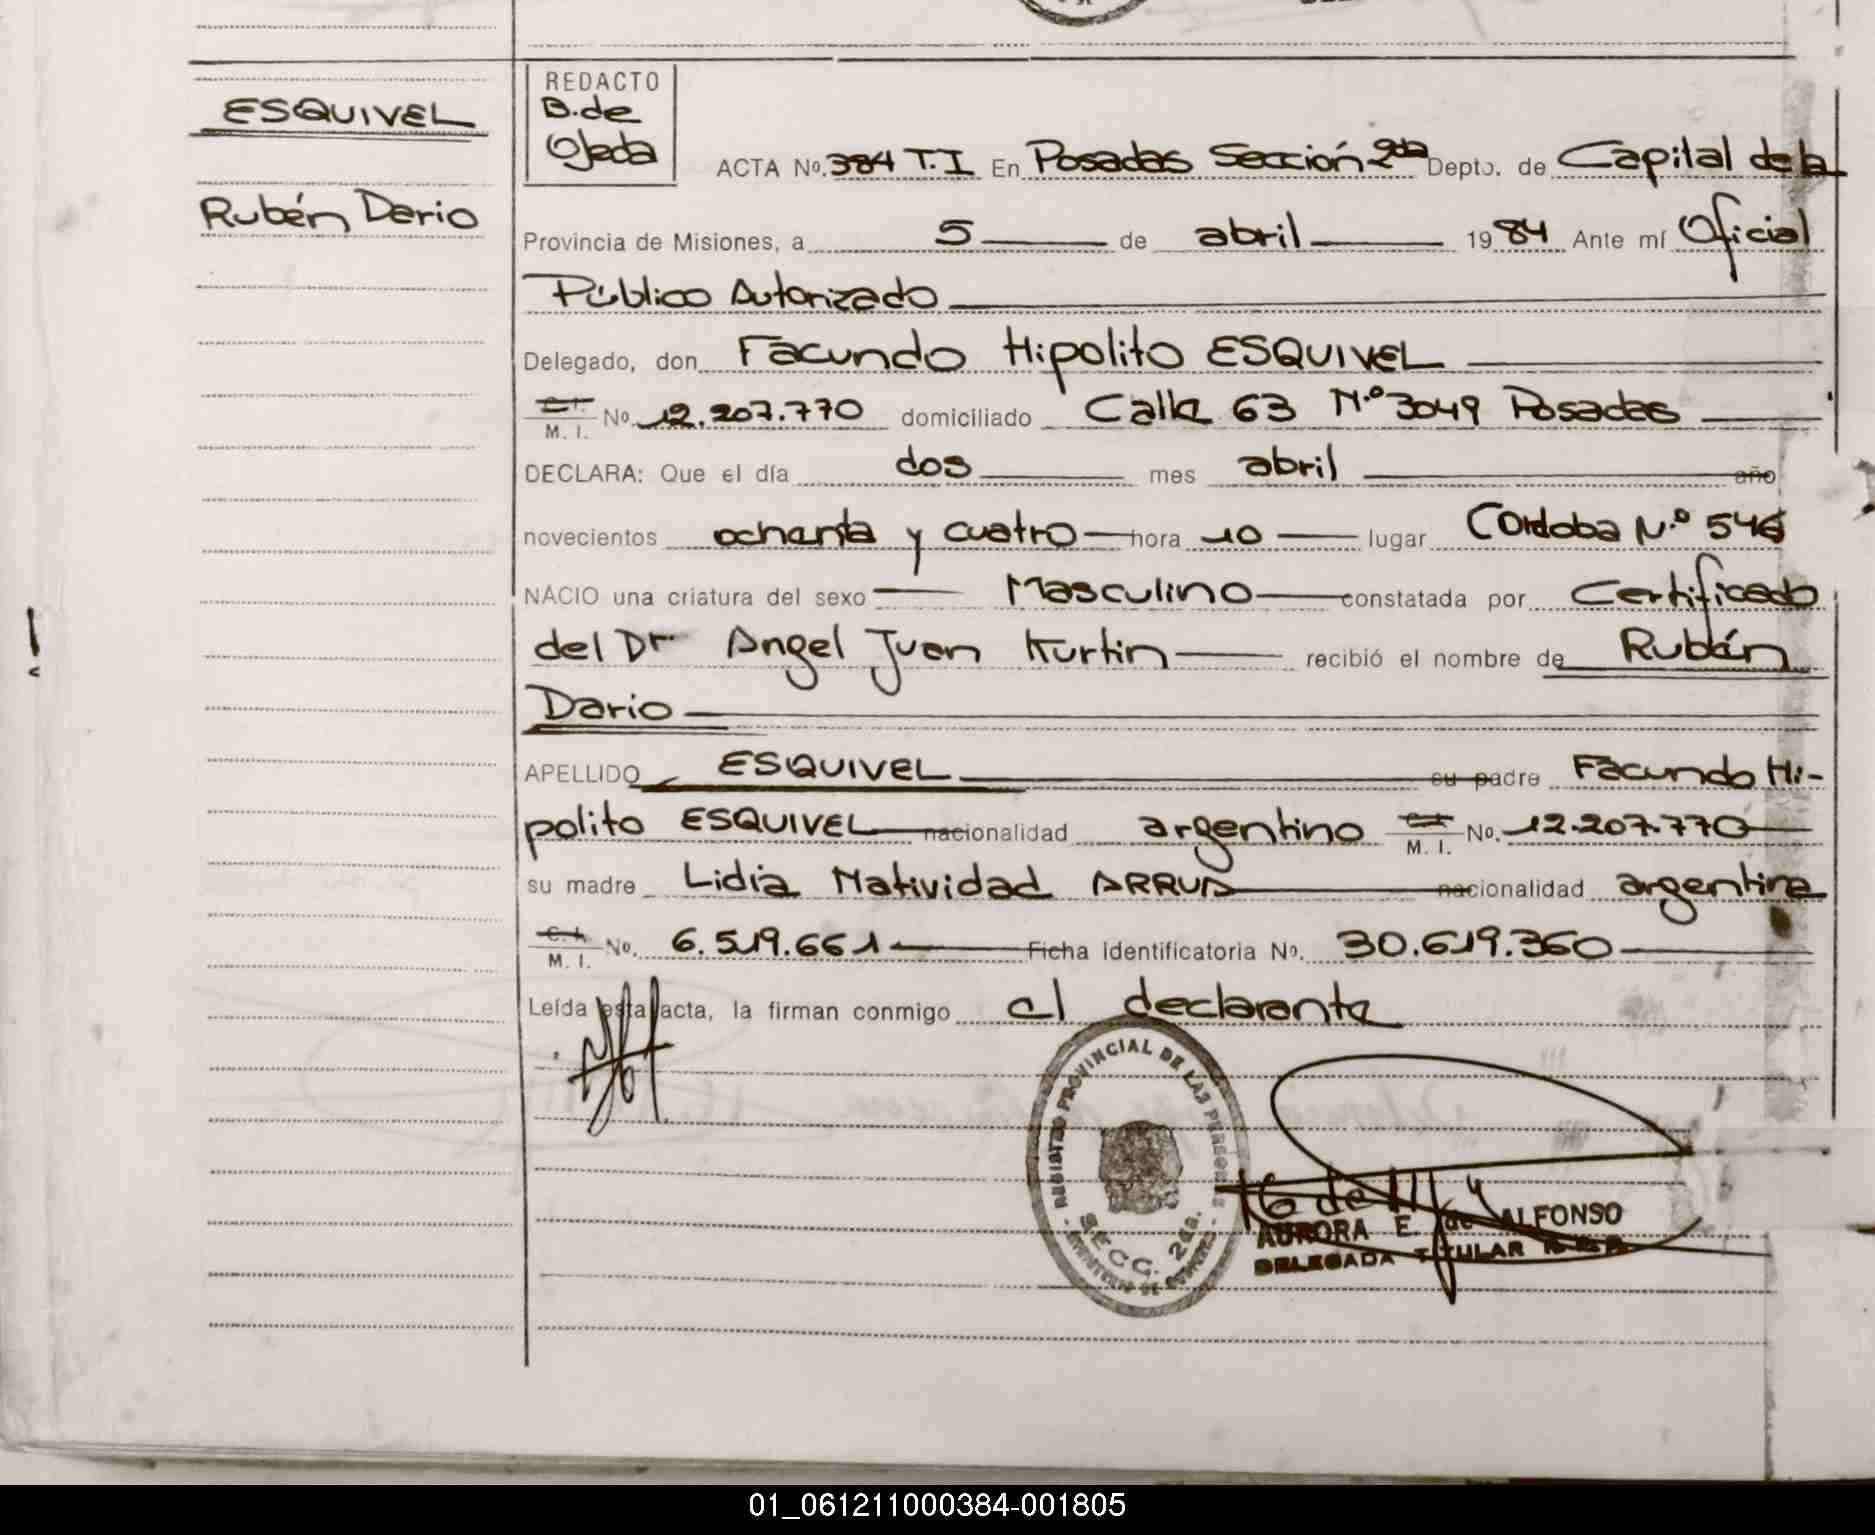 REDACTO
B. de
Ojeda
ESQUIVEL
Rubén Dario
ACTA No. 384 T.I En Posadas Sección 2da Depto. de Capital de la
Provincia de Misiones, a 5 de abril 1984 Ante mí Oficial
Público Autorizado
Delegado, don Facundo Hipolito ESQUIVEL
C.I. M. I. No. 12.207.770 domiciliado Calle 63 N.º 3049 Posadas
DECLARA: Que el día dos mes abril año
novecientos ochenta y cuatro hora 10 lugar Cordoba N.º 546
NACIO una criatura del sexo Masculino constatada por Certificado
del Dr Angel Juan Kurtin recibió el nombre de Rubén
Dario
APELLIDO ESQUIVEL su padre Facundo Hi-
polito ESQUIVEL nacionalidad argentino C.I. M. I. No. 12.207.770
su madre Lidia Natividad ARRUA nacionalidad argentina
C.I. M. I. No. 6.519.661 Ficha Identificatoria No. 30.619.360
Leída esta acta, la firman conmigo el declarante
REGISTRO PROVINCIAL DE LAS PERSONAS
SECC. 2da.
AURORA E. de ALFONSO
DELEGADA TITULAR
01_061211000384-001805